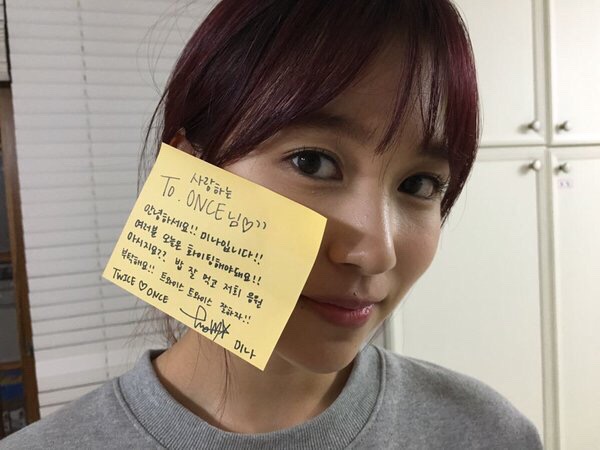 사랑하는
To. ONCE님♡))
안녕하세요!! 미나입니다!!
여러분 오늘은 화이팅해야돼요!!
아시지요?? 밥 잘 먹고 저희 응원
부탁해요!! 트와이스 트와이스 잘하자!!
TWICE ♡ ONCE
미나